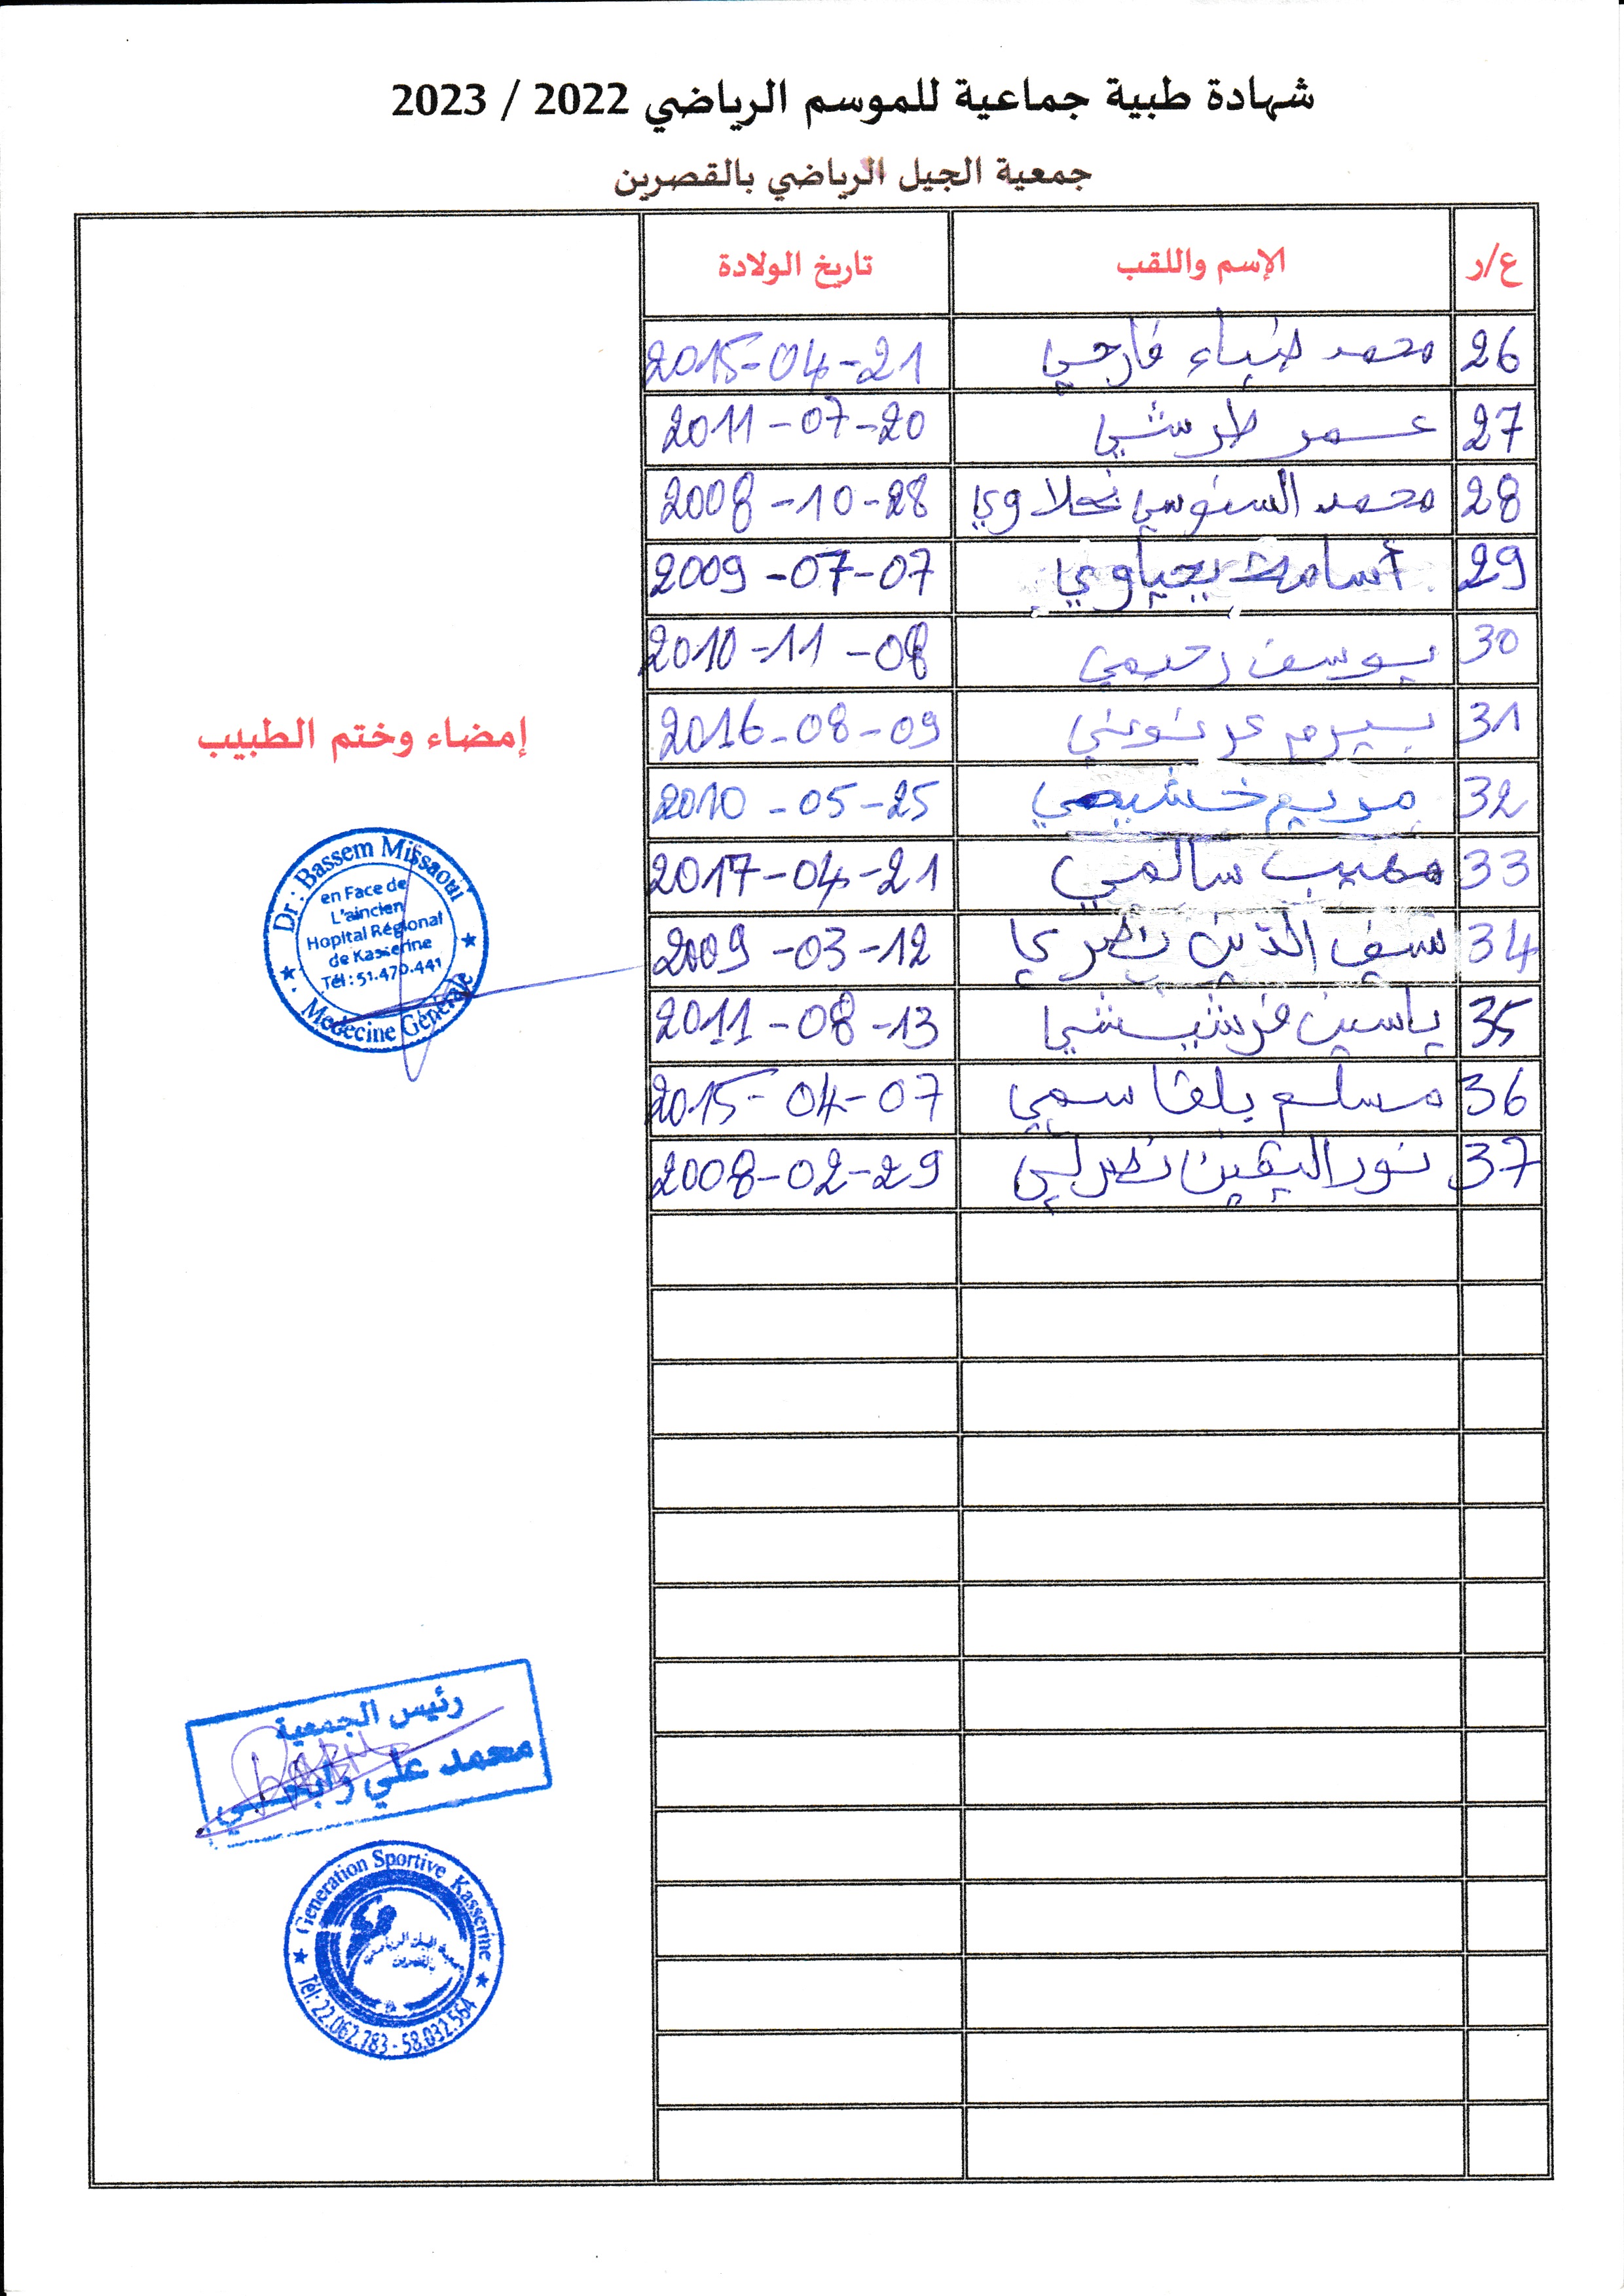 شهادة طبية جماعية للموسم الرياضي 2022 / 2023
جمعية الجيل الرياضي بالقصرين
ع/ر الإسم واللقب تاريخ الولادة
26 محمد ضياء فارحي 2015-04-21
27 عمر طرشي 2011-07-20
28 محمد السنوسي نحلاوي 2008-10-28
29 أسامة يحياوي 2009-07-07
30 يوسف رحيمي 2010-11-08
31 بيرم 2016-08-09
32 مريم خشيمي 2010-05-25
33 مهيب سالمي 2017-04-21
34 سيف الدين نصري 2009-03-12
35 ياسين قرشيشي 2011-08-13
36 مسلم بلقاسمي 2015-04-07
37 نور اليقين نصرلي 2008-02-29
إمضاء وختم الطبيب
Dr : Bassem Missaoui
en Face de
L'aincien
Hopital Régional
de Kasserine
Tél : 51.470.441
Medecine Générale
رئيس الجمعية
محمد علي رابحي
Generation Sportive Kasserine
جمعية الجيل الرياضي
بالقصرين
Tél: 22.062.783 - 58.032.564